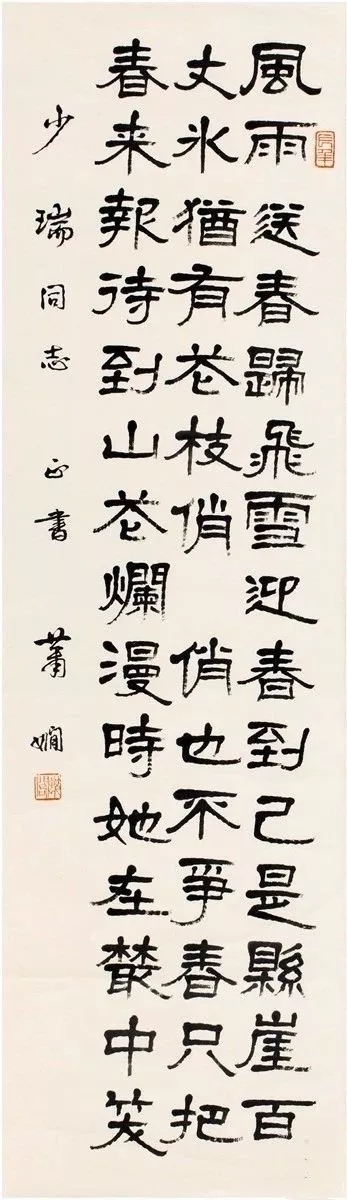 風雨送春歸飛雪迎春到已是縣崖百
丈氷猶有花枝俏 俏也不爭春只把
春来報待到山花爛漫時她在叢中笑
少瑞同志 正書 蕭嫻